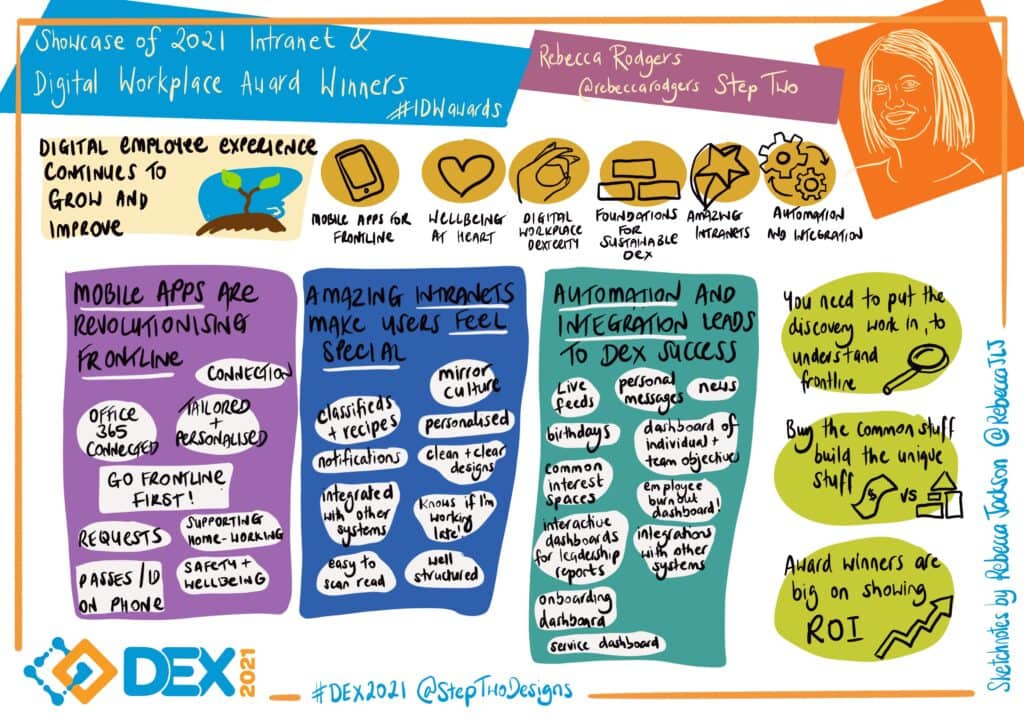 Showcase of 2021 Intranet &
Digital Workplace Award Winners
#IDWawards
Rebecca Rodgers
@rebeccarodgers Step Two
DIGITAL EMPLOYEE EXPERIENCE
CONTINUES TO
GROW AND
IMPROVE
MOBILE APPS FOR
FRONTLINE
WELLBEING
AT HEART
DIGITAL
WORKPLACE
DEXTERITY
FOUNDATIONS
FOR
SUSTAINABLE
DEX
AMAZING
INTRANETS
AUTOMATION
AND INTEGRATION
MOBILE APPS ARE
REVOLUTIONISING
FRONTLINE
CONNECTION
OFFICE
365
CONNECTED
TAILORED
+
PERSONALISED
GO FRONTLINE
FIRST!
REQUESTS
SUPPORTING
HOME-WORKING
PASSES/ID
ON PHONE
SAFETY +
WELLBEING
AMAZING INTRANETS
MAKE USERS FEEL
SPECIAL
mirror
culture
classifieds
+ recipes
personalised
notifications
clean + clear
designs
integrated
with other
systems
Knows if I'm
working
late!
easy to
scan read
well
structured
AUTOMATION AND
INTEGRATION LEADS
TO DEX SUCCESS
Live
feeds
personal
messages
news
birthdays
dashboard of
individual +
team objectives
common
interest
spaces
employee
burnout
dashboard!
interactive
dashboards
for leadership
reports
integrations
with other
systems
onboarding
dashboard
service dashboard
You need to put the
discovery work in, to
understand
frontline
Buy the common stuff
build the unique
stuff
$ VS
Award winners are
big on showing
ROI
DEX
2021
#DEX2021 @StepTwoDesigns
Sketchnotes by Rebecca Jackson @RebeccaJLJ